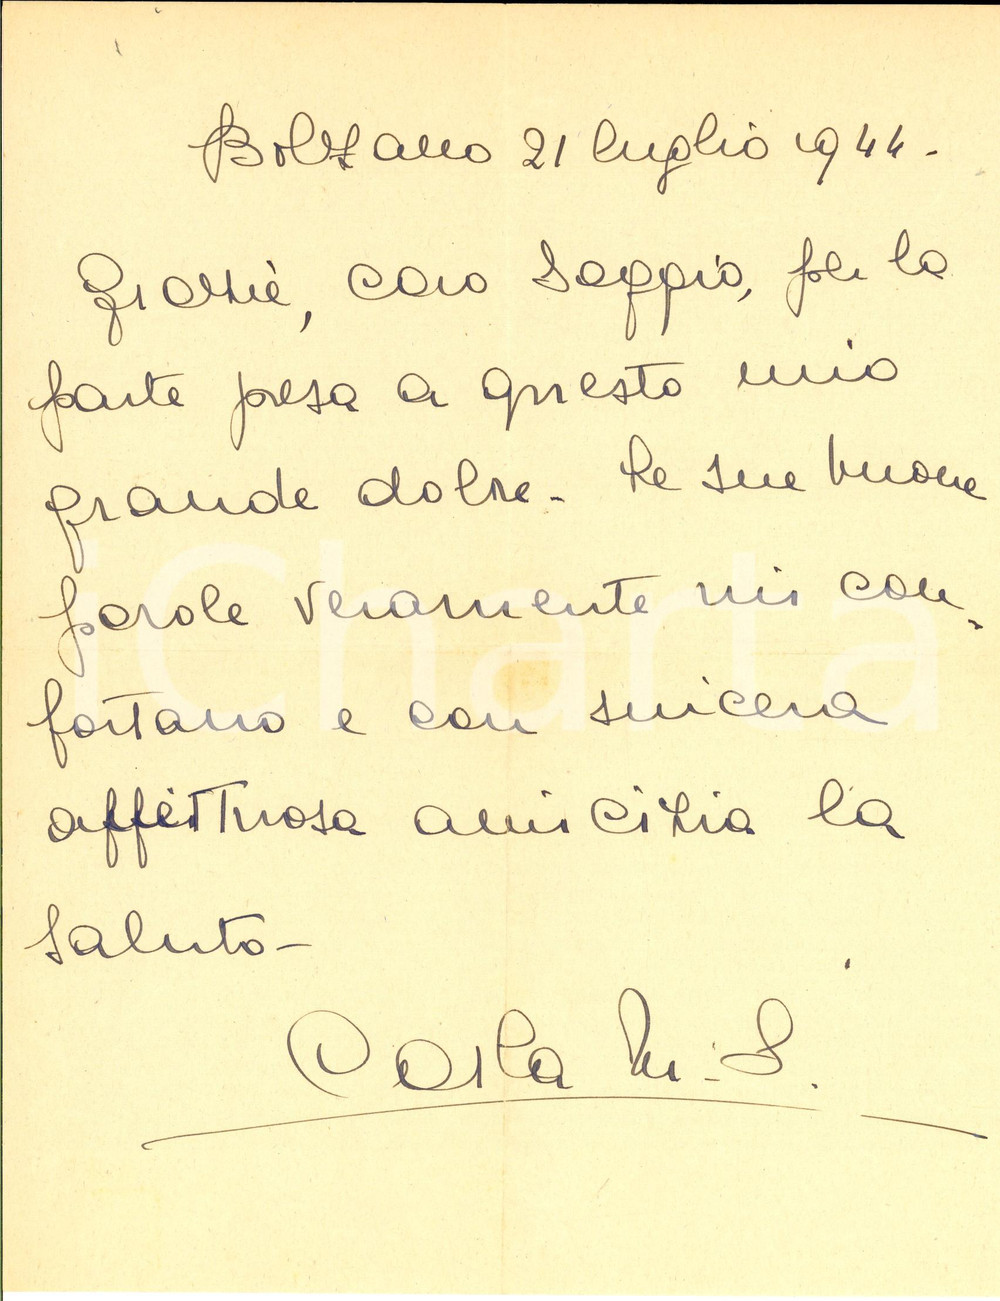 Bolzano 21 luglio 1944.
Grazie, caro Saggio, per la
parte presa a questo mio
grande dolore - Le sue buone
parole veramente mi con-
fortano e con sincera
affettuosa amicizia la
saluto -
Carla M. S.
iCharta